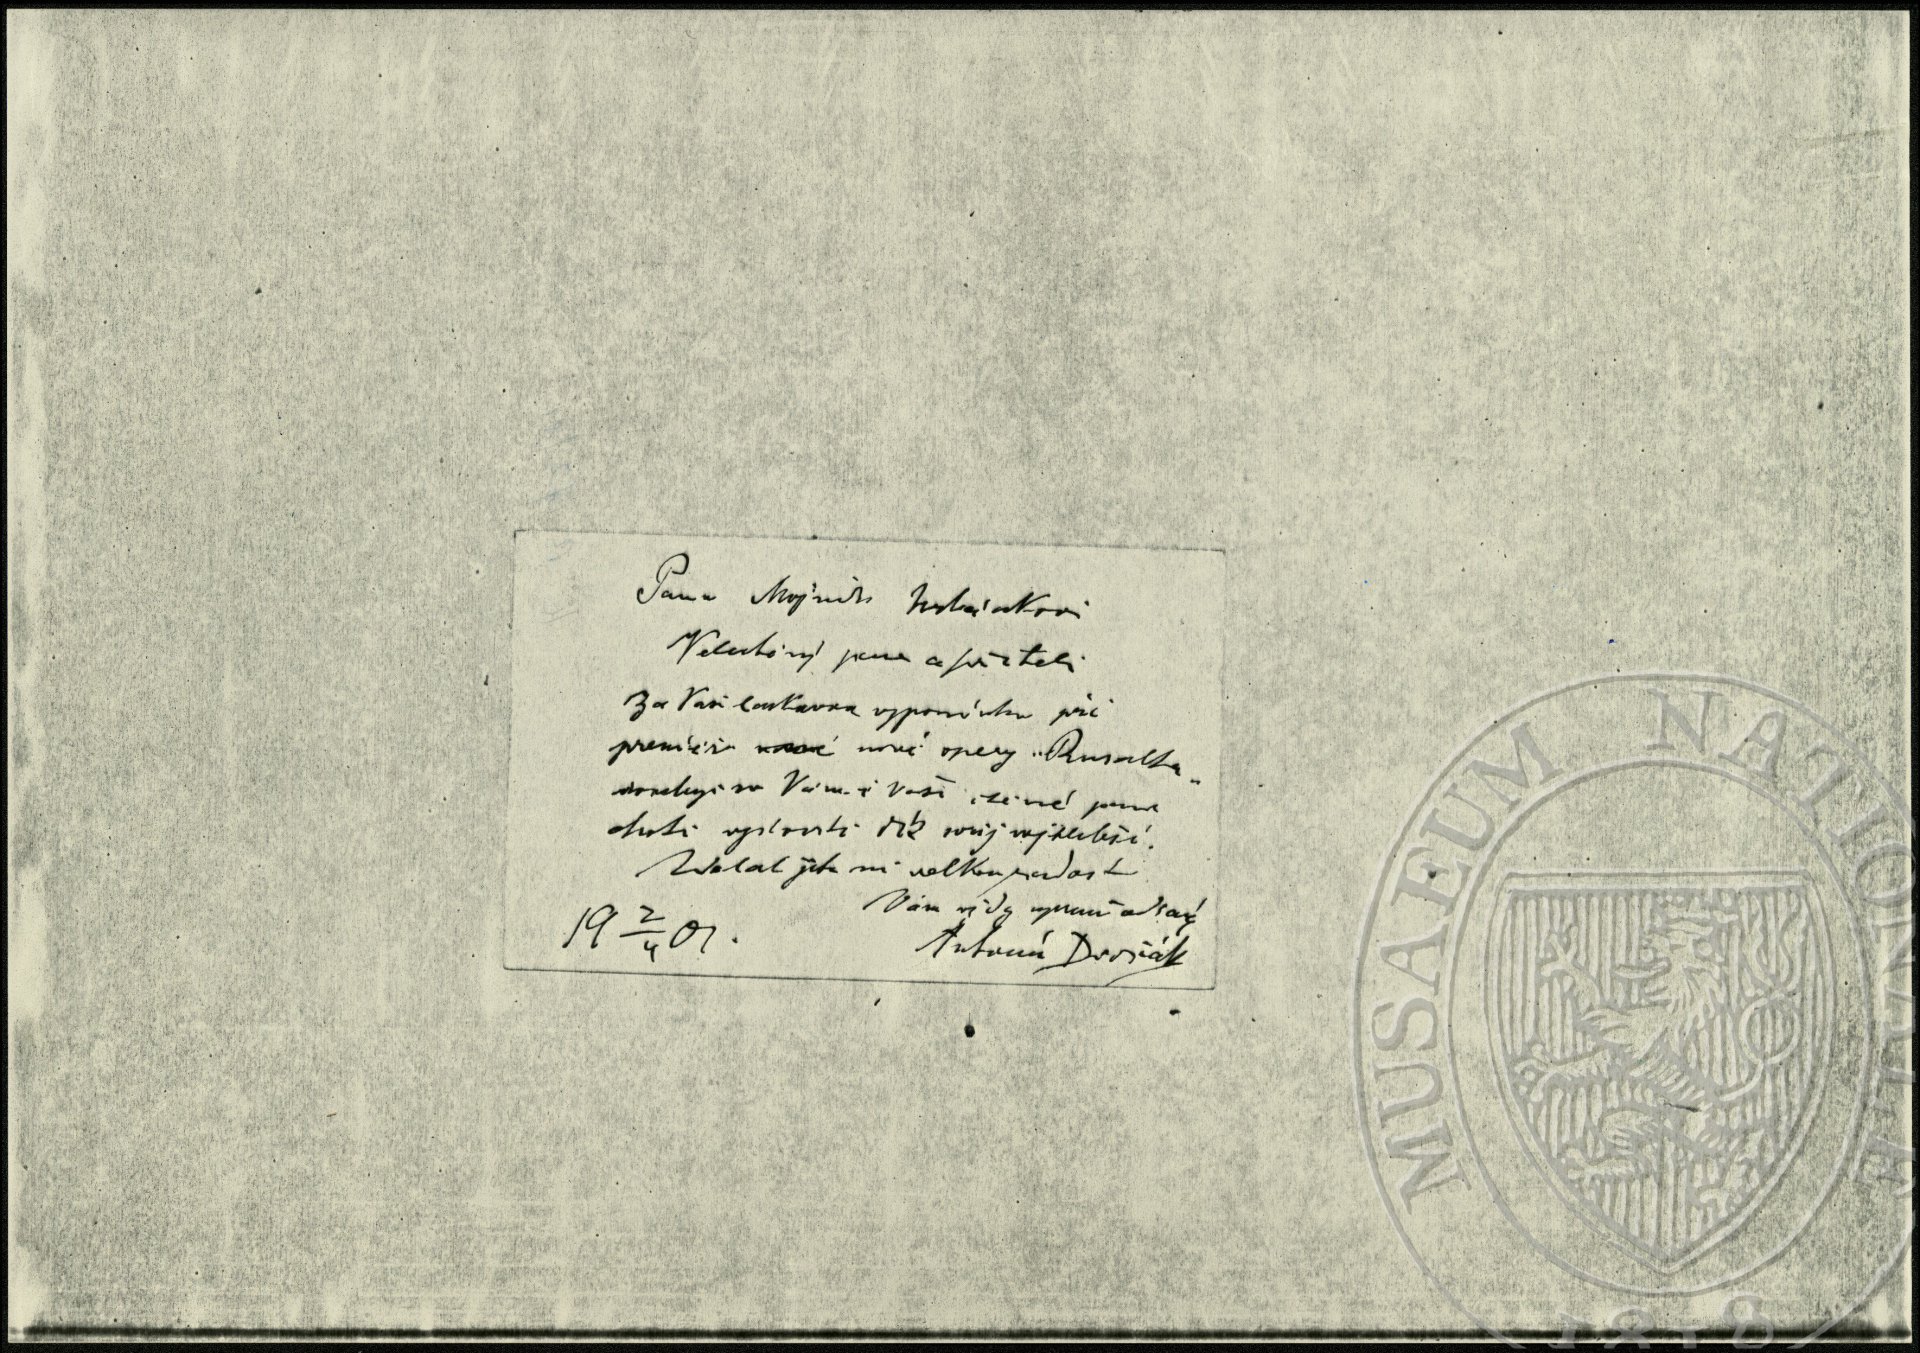 Panu Mojmíru Urbánkovi
Velectěný pane a příteli
Za Vaši laskavou vzpomínku při
premiéře nové opery „Rusalka„
Vám i Vaší ctěné paní
choti vysloviti dík svůj nejhlubší.
Udělal jste mi velkou radost
Vám vždy upřímně oddaný
19 2/4 01.
Antonín Dvořák
MUSAEUM NATIONALE
1818